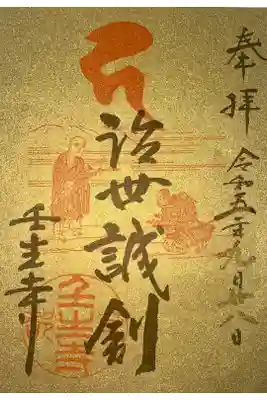 奉拝
令和五年九月廿八日
治世誠剣
壬生寺
壬生寺